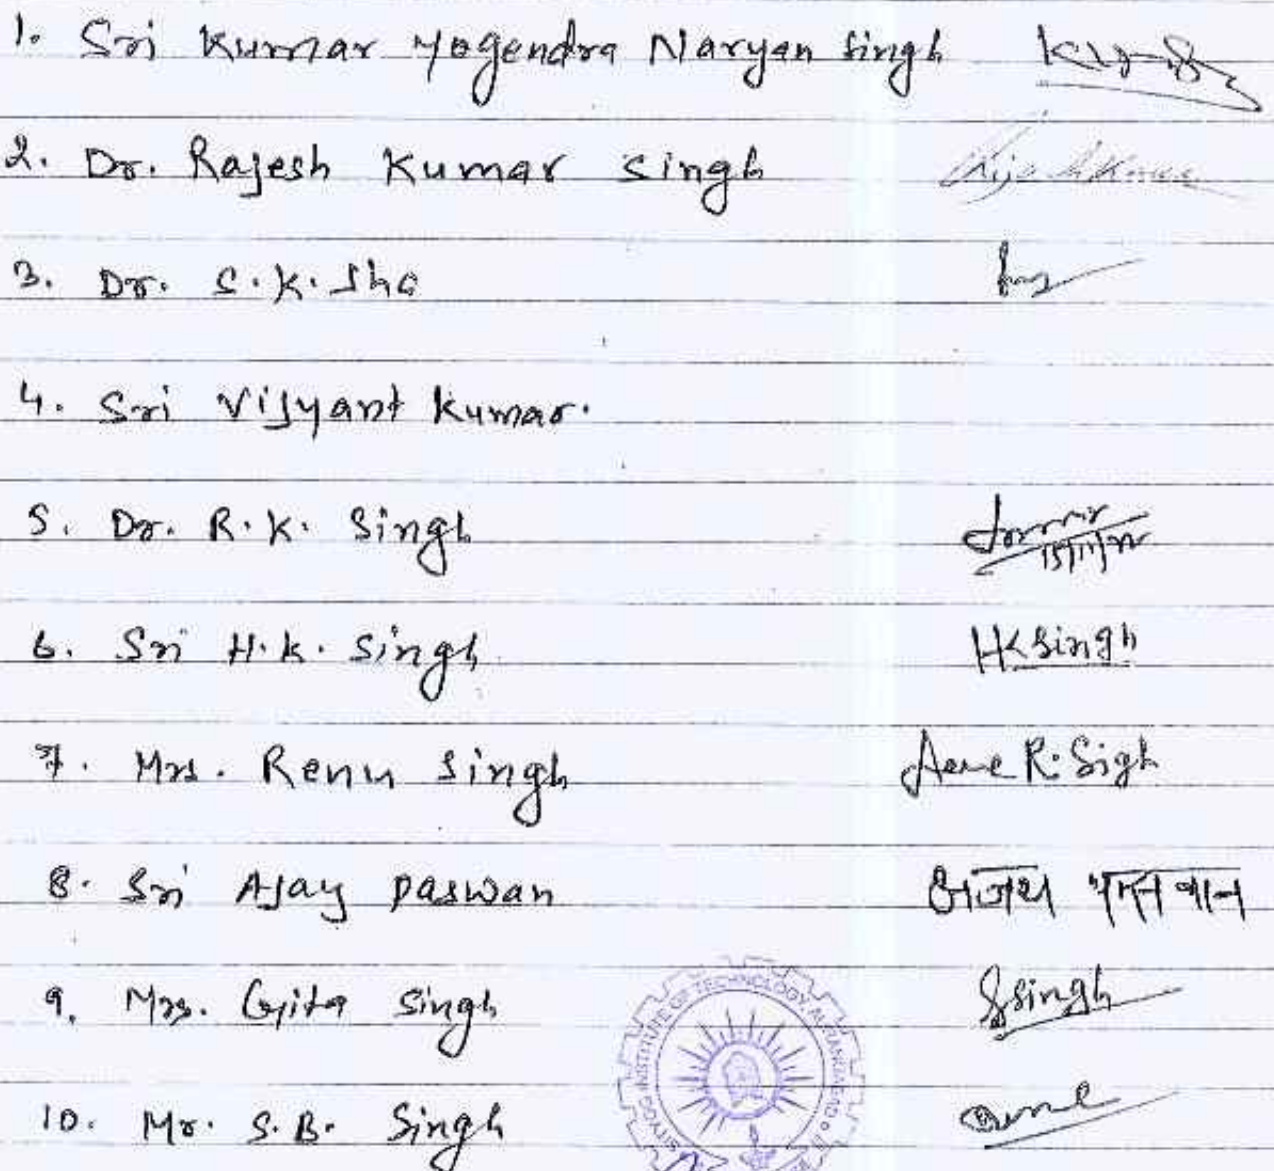 1. Sri Kumar Yogendra Naryan Singh
2. Dr. Rajesh Kumar Singh
3. Dr. S.K. Jha
4. Sri Vijyant Kumar.
5. Dr. R.K. Singh 15/11/22
6. Sri H.K. Singh HKSingh
7. Mrs. Renu Singh R. Sigh
8. Sri Ajay Paswan अजय
9. Mrs. Gita Singh GSingh
10. Mr. S.B. Singh
SITYOG INSTITUTE OF TECHNOLOGY, AURANGABAD